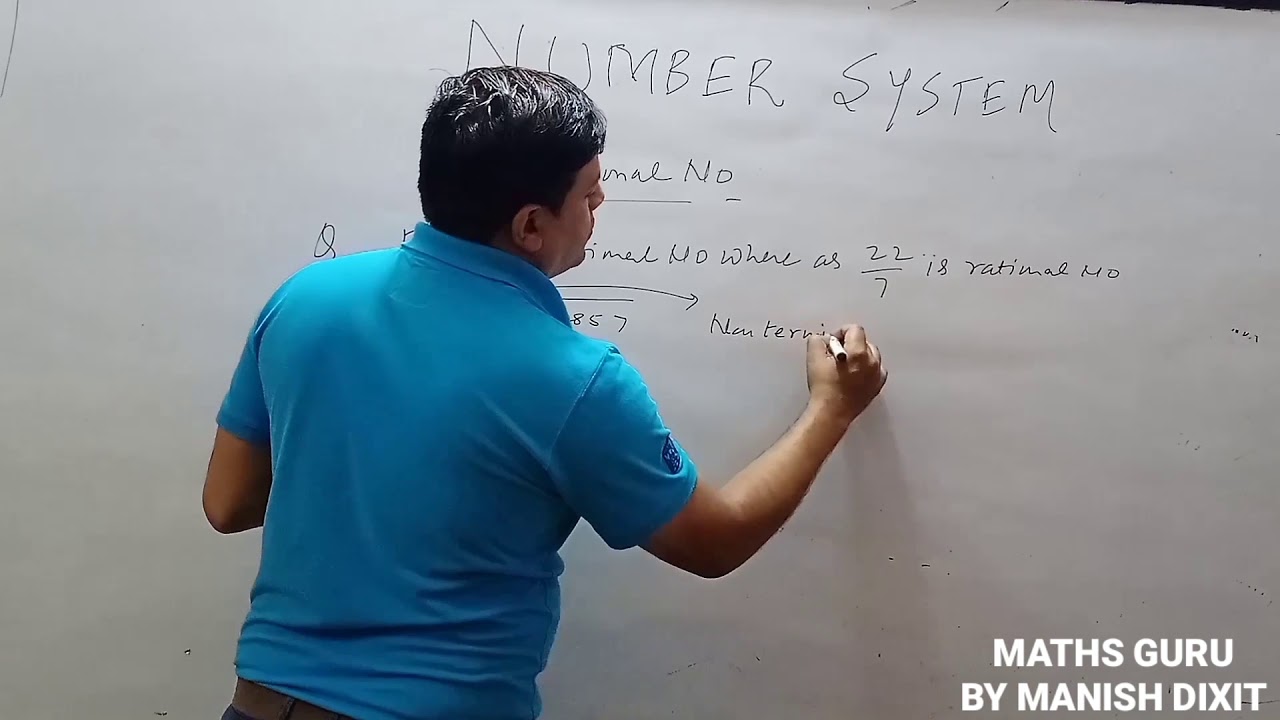 NUMBER SYSTEM
onal No
Q
ional No where as 22/7 is rational No
857
Non termi
MATHS GURU
BY MANISH DIXIT